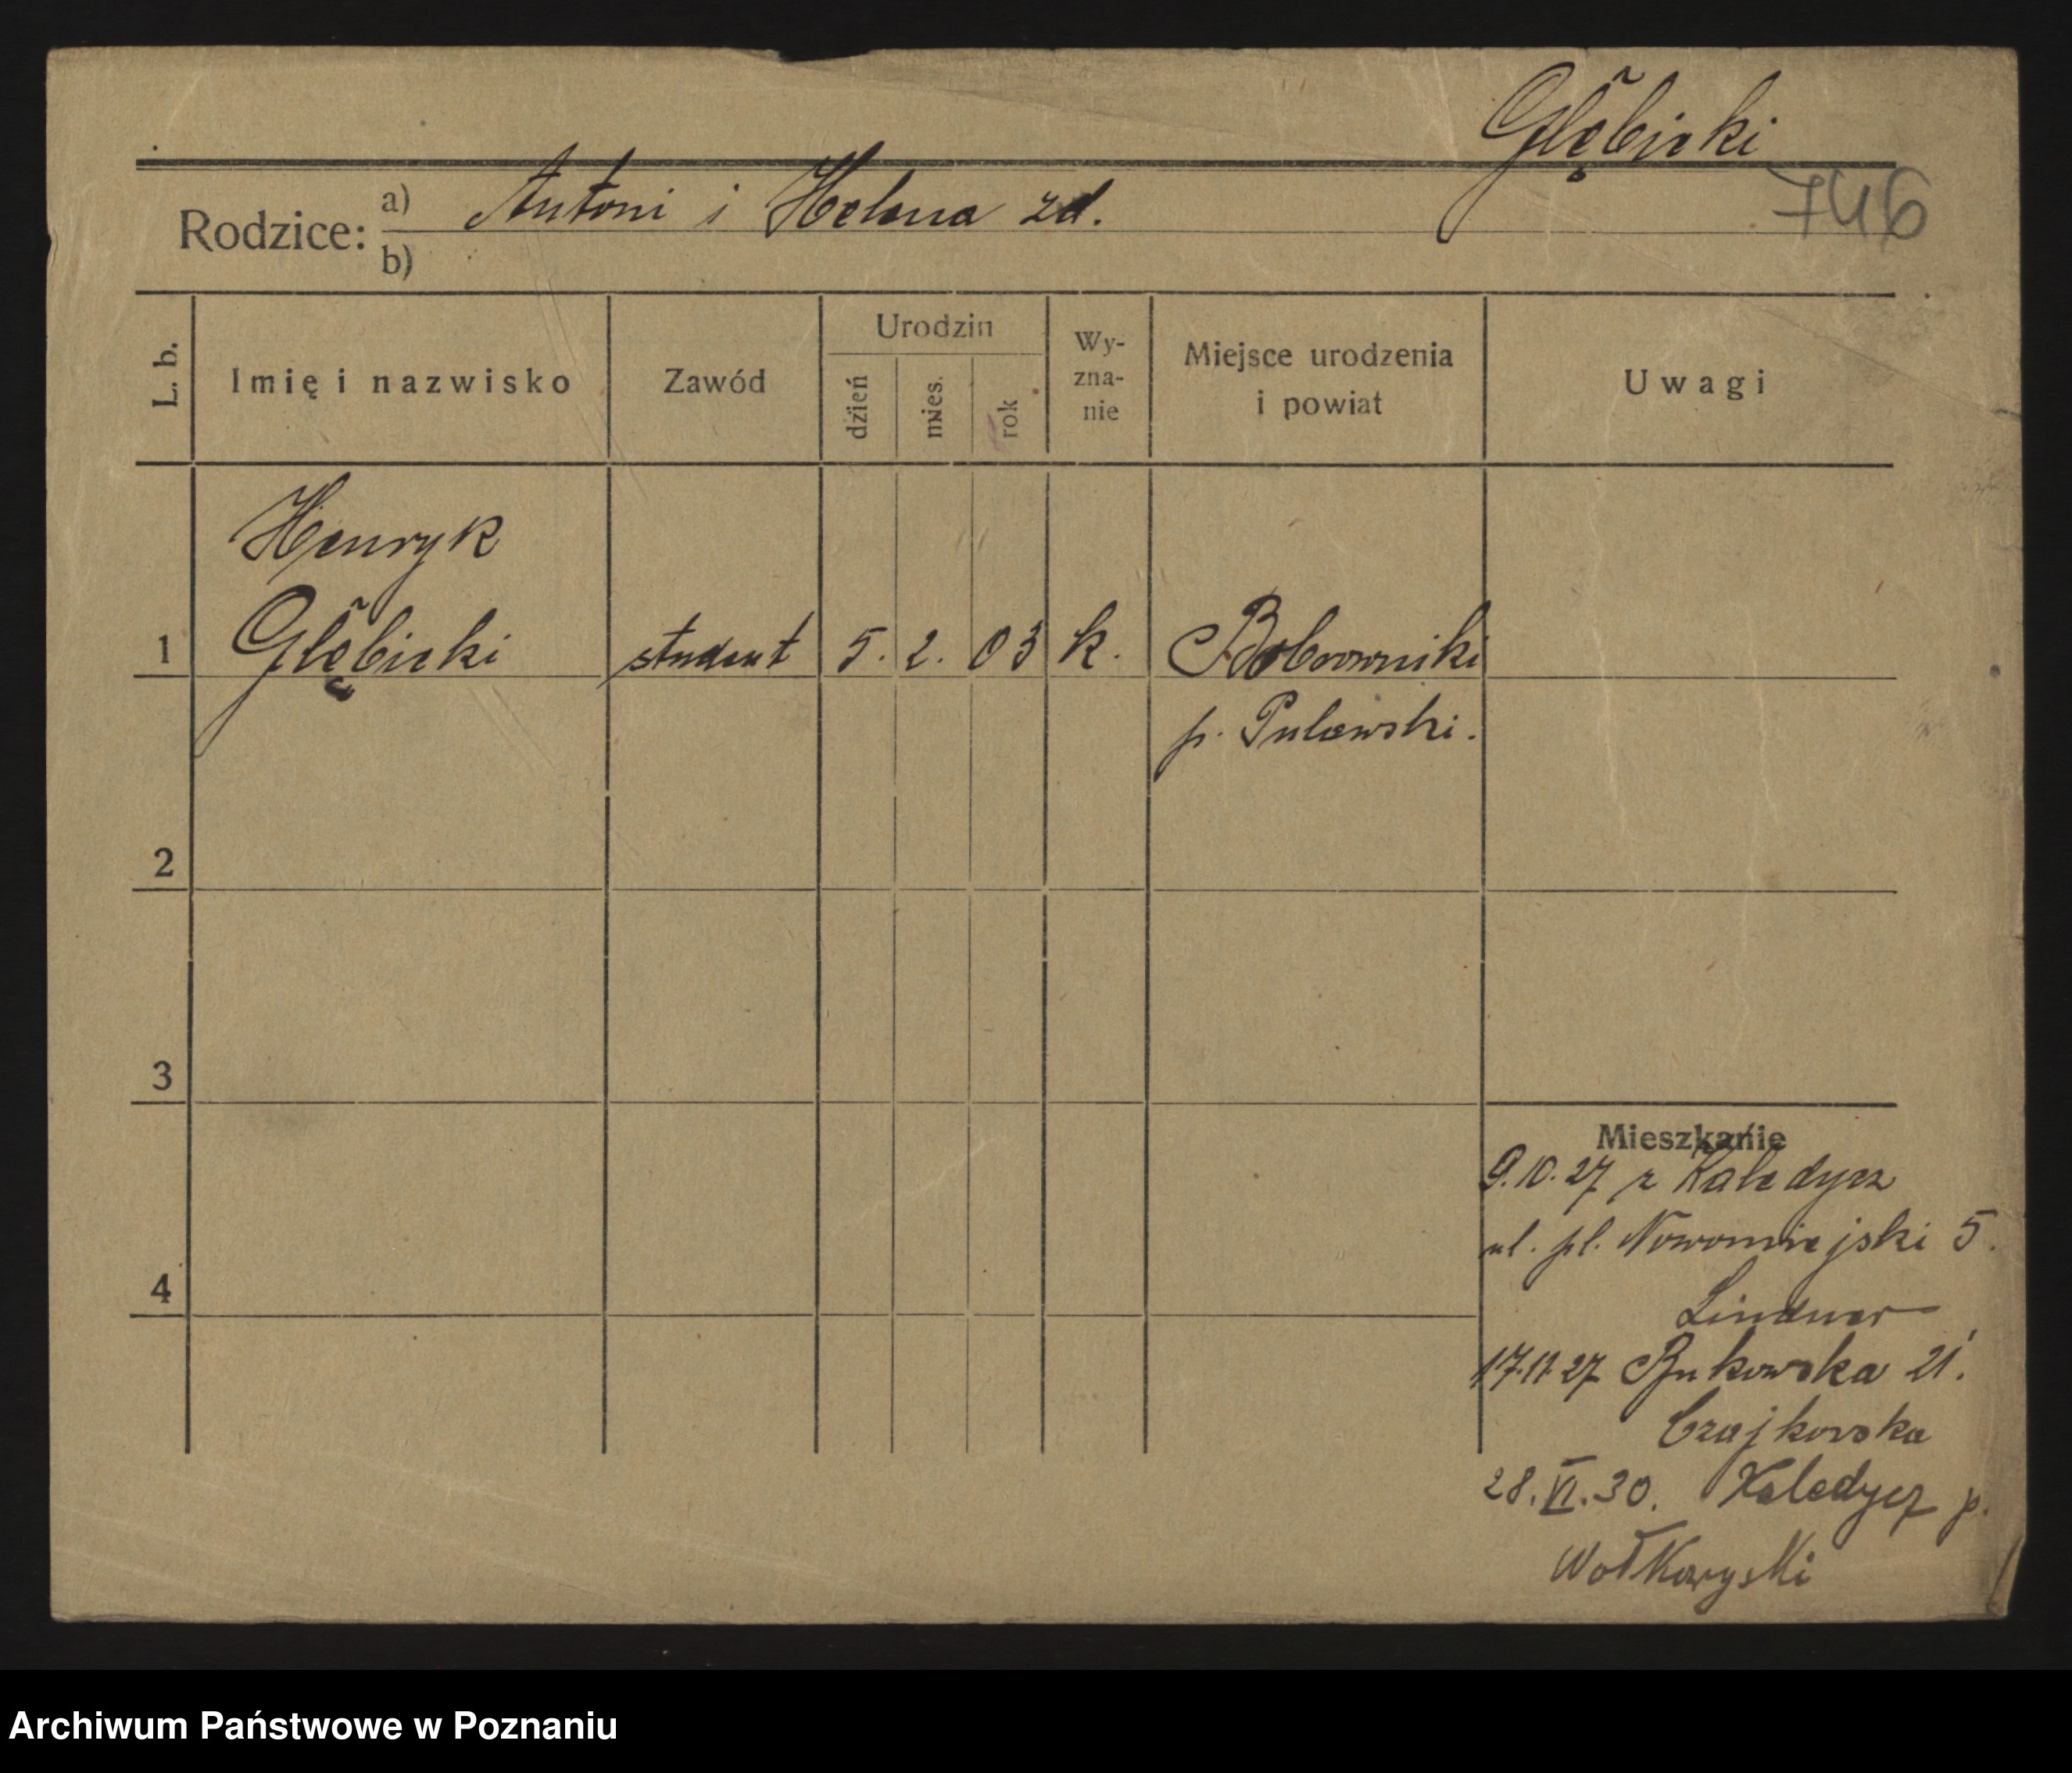 Głębicki
746
Rodzice: a) Antoni i Helena zd.
b)
L. b. Imię i nazwisko Zawód Urodzin dzień mies. rok Wyznanie Miejsce urodzenia i powiat Uwagi
Henryk
1 Głębicki student 5. 2. 03 k. Bobrowniki
p. Puławski.
2
3
4
Mieszkanie
9.10.27 z Kaledycz
ul. pl. Nowomiejski 5.
Lindner
17.11.27 Bukowska 21.
Czajkowska
28.VI.30. Kaledycz p.
Wołkowyski
Archiwum Państwowe w Poznaniu